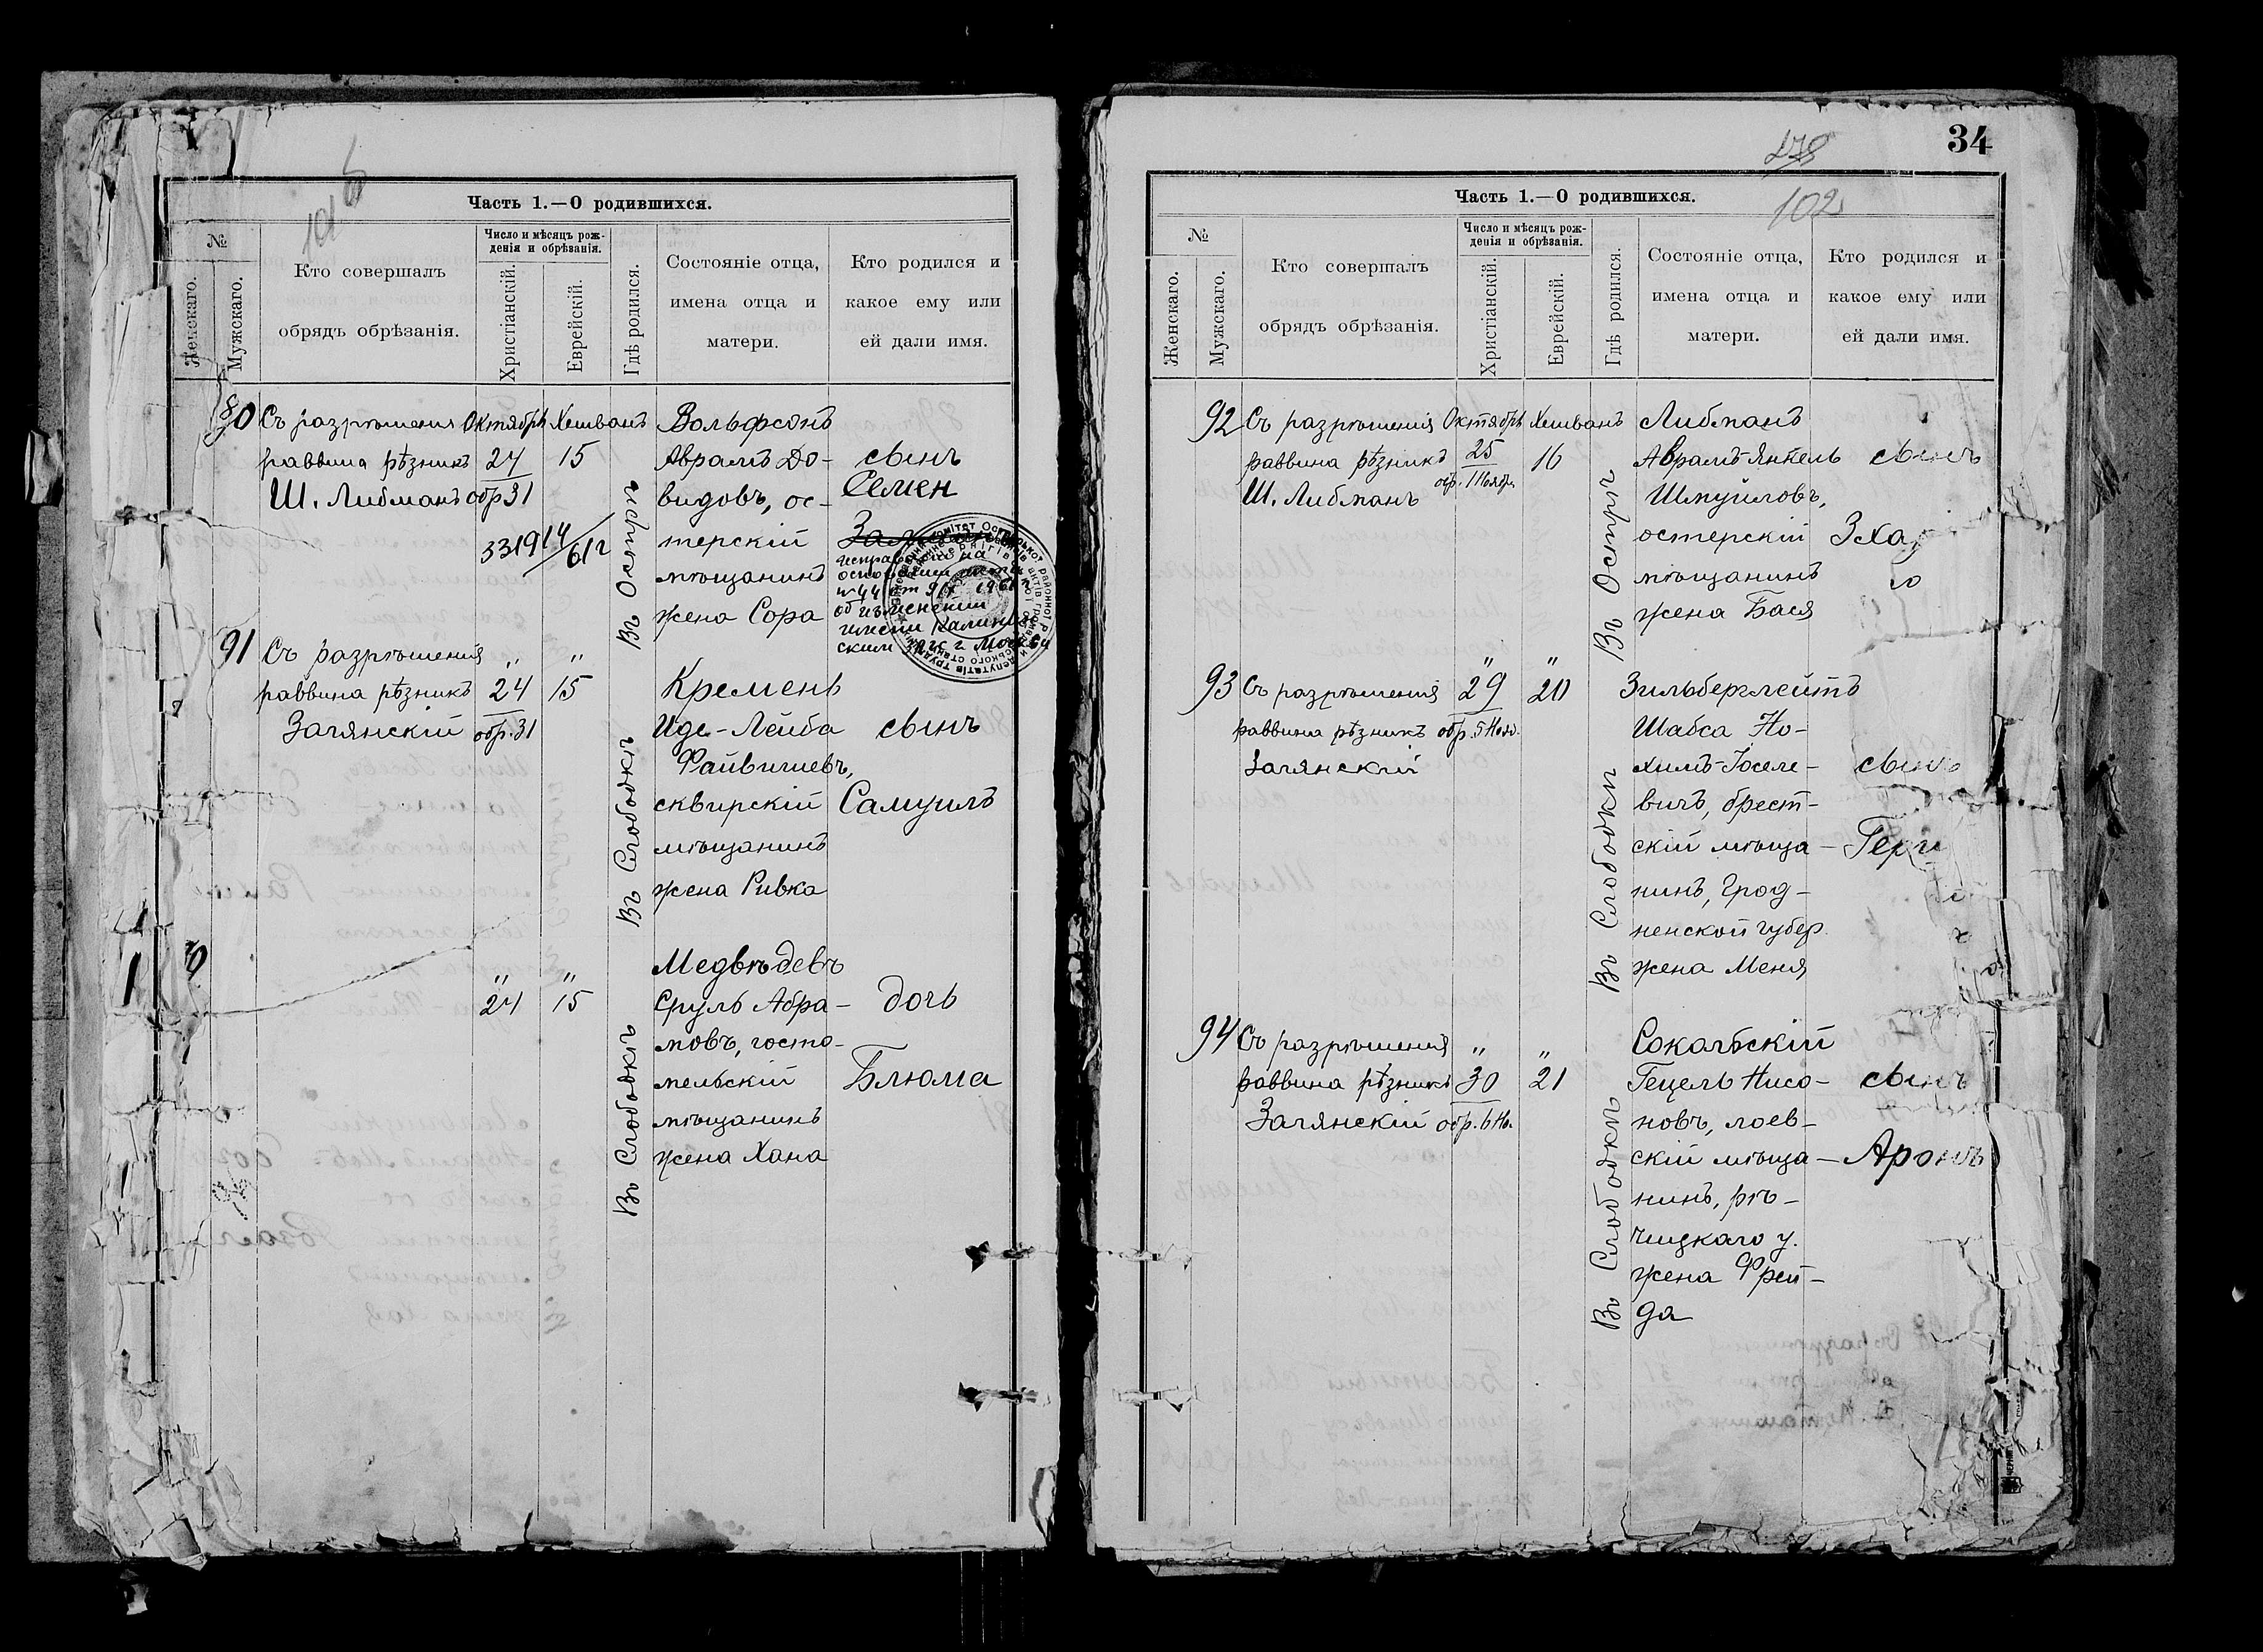 Часть 1.—О родившихся.
№
Женскаго.
Мужскаго.
Кто совершалъ
обрядъ обрѣзанія.
Число и мѣсяцъ рож-
денія и обрѣзанія.
Христіанскій.
Еврейскій.
Гдѣ родился.
Состояніе отца,
имена отца и
матери.
Кто родился и
какое ему или
ей дали имя.
90 Съ разрѣшенія Октябрь Хешванъ Вольфсонъ
раввина рѣзникъ 24 15 Аврамъ До- сынъ
Ш. Либманъ обр 31 видовъ, ос- Семен
терскій
мѣщанинъ
жена Сора
Въ Острѣ
исправлено на
основании
об изменении
имени Калинин
ским
91 Съ разрѣшенія " "
раввина рѣзникъ 24 15 Кремень
Загянскій обр. 31 Иде-Лейба сынъ
Файвишевъ,
сквирскій Самуилъ
мѣщанинъ
жена Ривка
Въ Слободкѣ
" " Медвѣдевъ
24 15 Сруль Абра- дочь
мовъ, госто-
мельскій Блюма
мѣщанинъ
жена Хана
Въ Слободкѣ
34
102
Часть 1.—О родившихся.
№
Женскаго.
Мужскаго.
Кто совершалъ
обрядъ обрѣзанія.
Число и мѣсяцъ рож-
денія и обрѣзанія.
Христіанскій.
Еврейскій.
Гдѣ родился.
Состояніе отца,
имена отца и
матери.
Кто родился и
какое ему или
ей дали имя.
92 Съ разрѣшенія Октябрь Хешванъ Либманъ
раввина рѣзникъ 25 16 Аврамъ-Янкель сынъ
Ш. Либманъ обр. 1 Ноябр. Шмуиловъ,
остерскій
мѣщанинъ
жена Бася
Въ Острѣ
93 Съ разрѣшенія " 29 " 20 Зильберглейтъ
раввина рѣзникъ обр. 5 Нояб. Шабса Но-
Загянскій химъ-Іоселе- сынъ
вичъ, брест-
скій мѣща-
нинъ, Грод-
ненской губер.
жена Меня
Въ Слободкѣ
94 Съ разрѣшенія " " Сокольскій
раввина рѣзникъ 30 21 Гецель Нисо- сынъ
Загянскій обр. 6 Но. новъ, лоев-
скій мѣща- Аронъ
нинъ, рѣ-
чицкаго у.
жена Фрей-
да
Въ Слободкѣ